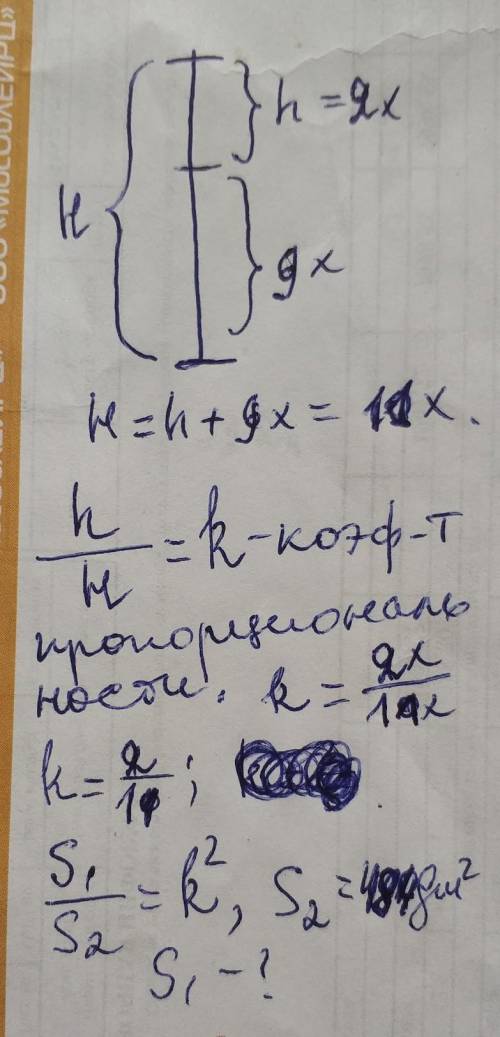 H
} h = 2x
} 9x
H = h + 9x = 11x.
h/H = k - коэф-т
пропорциональ
ности. k = 2x/11x
k = 2/11 ;
S₁/S₂ = k², S₂ = 484 дм²
S₁ - ?